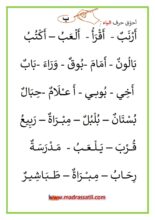 أحوّق حرف الباء : ب
أَرْنَبٌ - أَقْرَأُ - أَلْعَبُ - أَكْتُبُ
بَالُونٌ - أَمَامَ - بُوقٌ - وَرَاءَ - بَابٌ
أَخِي - بُوبِي - أَعْلَامٌ - حِبَالٌ
بُسْتَانٌ - بُلْبُلٌ - مِبْرَاةٌ - رَبِيعُ
قُرْبَ - يَلْعَبُ - مَدْرَسَةٌ
رِحَابُ - مِبْرَاةٌ - طَبَاشِيرُ
www.madrassatii.com